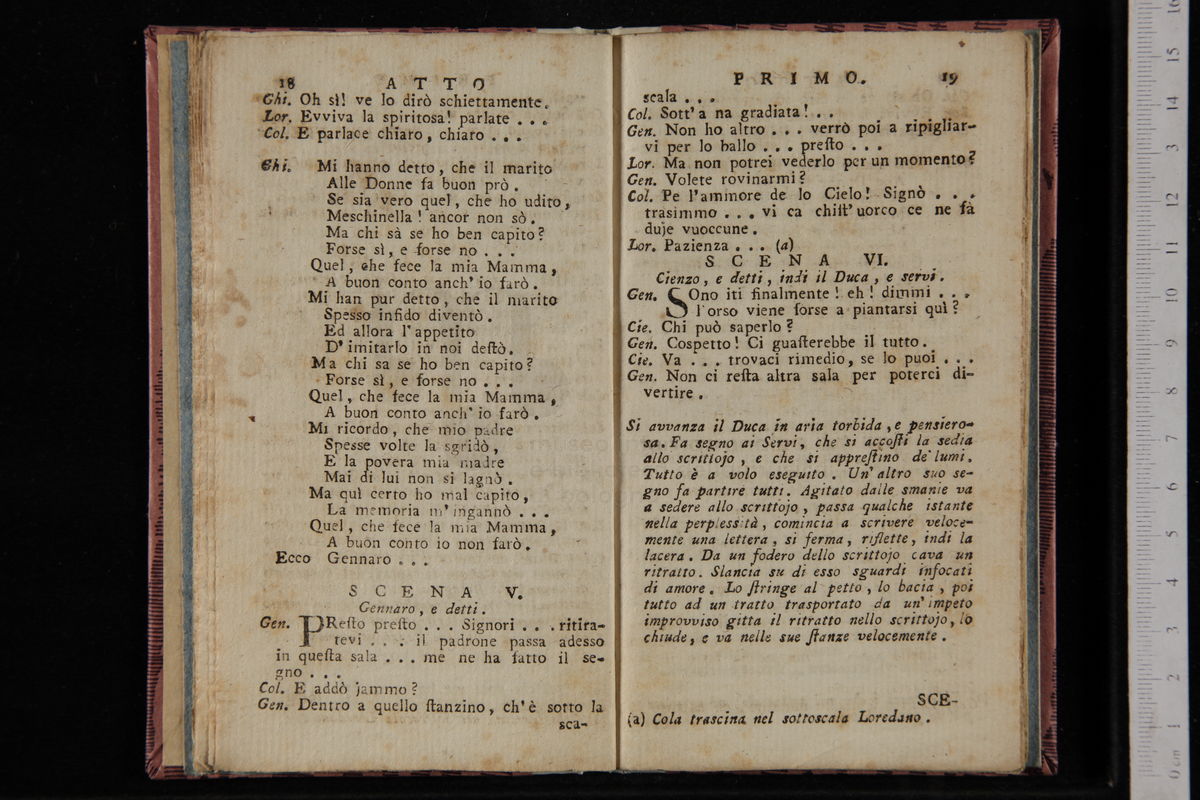 18 ATTO
Ghi. Oh sì! ve lo dirò schiettamente.
Lor. Evviva la spiritosa! parlate . . .
Col. E parlace chiaro, chiaro . . .
Ghi. Mi hanno detto, che il marito
Alle Donne fa buon prò.
Se sia vero quel, che ho udito,
Meschinella! ancor non sò.
Ma chi sà se ho ben capito?
Forse sì, e forse no . . .
Quel, che fece la mia Mamma,
A buon conto anch' io farò.
Mi han pur detto, che il marito
Spesso infido diventò.
Ed allora l' appetito
D' imitarlo in noi deſtò.
Ma chi sa se ho ben capito?
Forse sì, e forse no . . .
Quel, che fece la mia Mamma,
A buon conto anch' io farò.
Mi ricordo, che mio padre
Spesse volte la sgridò,
E la povera mia madre
Mai di lui non si lagnò.
Ma quì certo ho mal capito,
La memoria m' ingannò . . .
Quel, che fece la mia Mamma,
A buon conto io non farò.
Ecco Gennaro . . .
SCENA V.
Gennaro, e detti.
Gen. PReſto preſto . . . Signori . . . ritira-
tevi . . . il padrone passa adesso
in queſta sala . . . me ne ha fatto il se-
gno . . .
Col. E addò jammo?
Gen. Dentro a quello ſtanzino, ch' è sotto la
sca-
PRIMO. 19
scala . . .
Col. Sott' a na gradiata! . .
Gen. Non ho altro . . . verrò poi a ripigliar-
vi per lo ballo . . . preſto . . .
Lor. Ma non potrei vederlo per un momento?
Gen. Volete rovinarmi?
Col. Pe l'ammore de lo Cielo! Signò . . .
trasimmo . . . vi ca chiſt' uorco ce ne fà
duje vuoccune.
Lor. Pazienza . . . (a)
SCENA VI.
Cienzo, e detti, indi il Duca, e servi.
Gen. SOno iti finalmente! eh! dimmi . . .
l'orso viene forse a piantarsi quì?
Cie. Chi può saperlo?
Gen. Cospetto! Ci guaſterebbe il tutto.
Cie. Va . . . trovaci rimedio, se lo puoi . . .
Gen. Non ci reſta altra sala per poterci di-
vertire.
Si avvanza il Duca in aria torbida, e pensiero-
sa. Fa segno ai Servi, che si accoſti la sedia
allo scrittojo, e che si appreſtino de' lumi.
Tutto è a volo eseguito. Un' altro suo se-
gno fa partire tutti. Agitato dalle smanie va
a sedere allo scrittojo, passa qualche istante
nella perplessità, comincia a scrivere veloce-
mente una lettera, si ferma, riflette, indi la
lacera. Da un fodero dello scrittojo cava un
ritratto. Slancia su di esso sguardi infocati
di amore. Lo ſtringe al petto, lo bacia, poi
tutto ad un tratto trasportato da un' impeto
improvviso gitta il ritratto nello scrittojo, lo
chiude, e va nelle sue ſtanze velocemente.
SCE-
(a) Cola trascina nel sottoscala Loredano.
0 cm 1 2 3 4 5 6 7 8 9 10 11 12 13 14 15 16